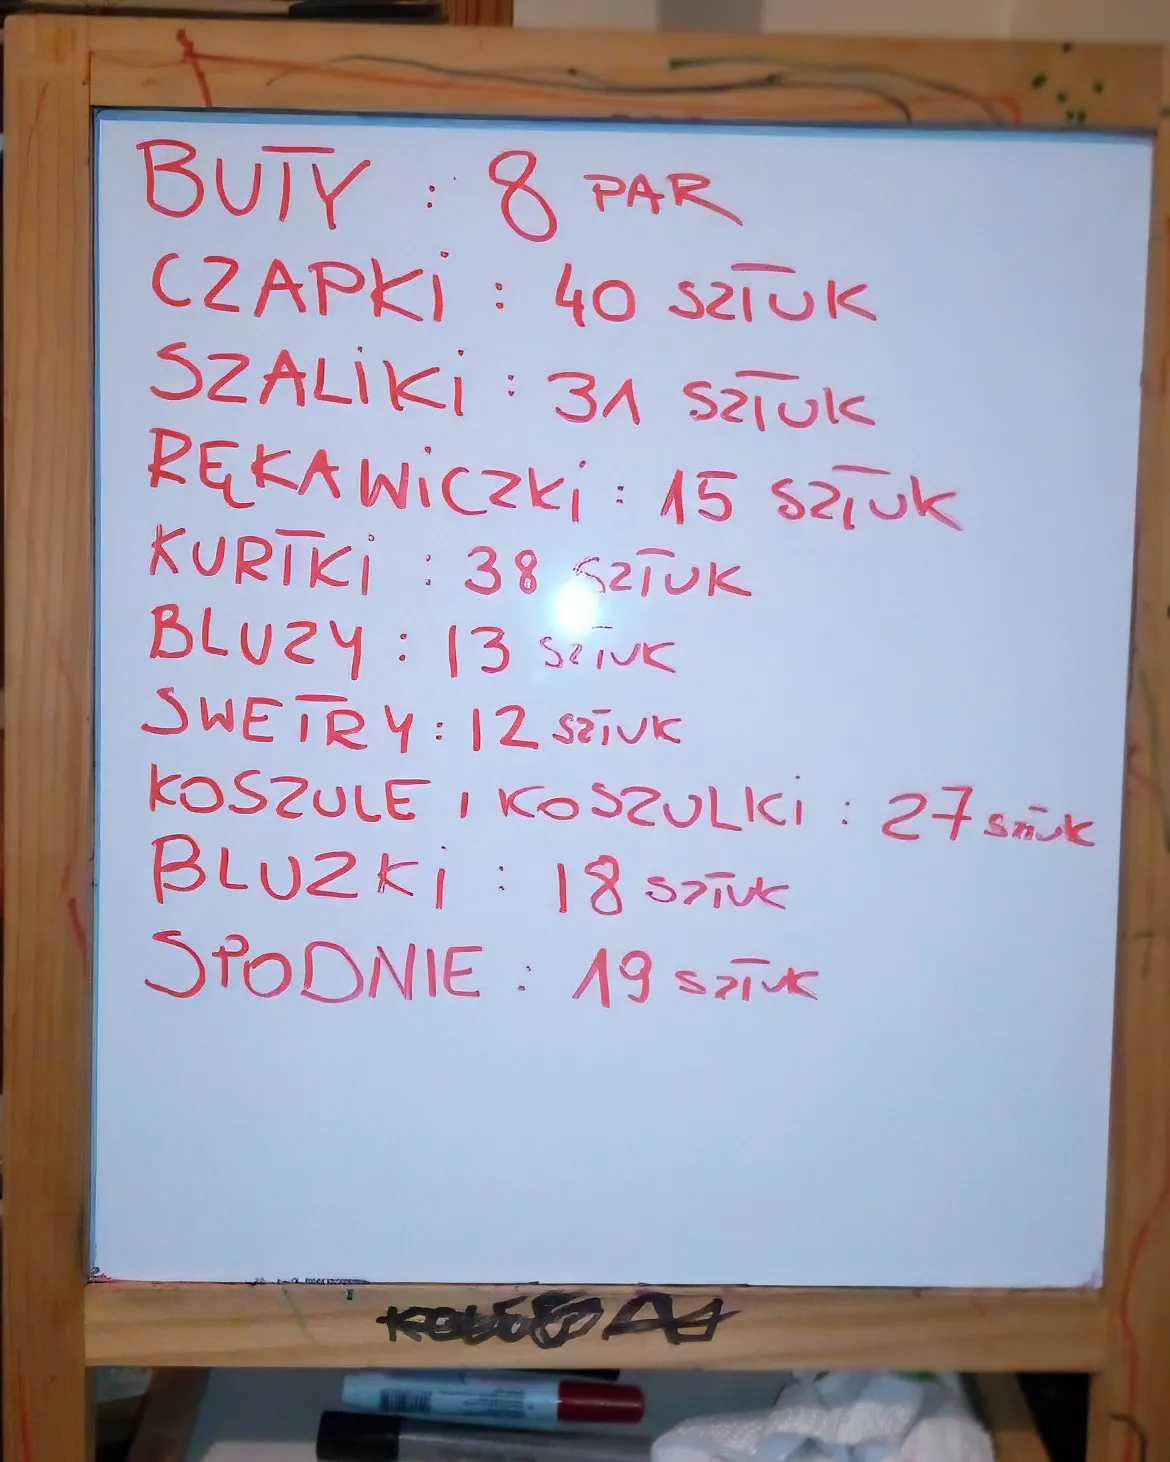 BUTY : 8 PAR
CZAPKI : 40 SZTUK
SZALIKI : 31 SZTUK
RĘKAWICZKI : 15 SZTUK
KURTKI : 38 SZTUK
BLUZY : 13 SZTUK
SWETRY : 12 SZTUK
KOSZULE I KOSZULKI : 27 SZTUK
BLUZKI : 18 SZTUK
SPODNIE : 19 SZTUK